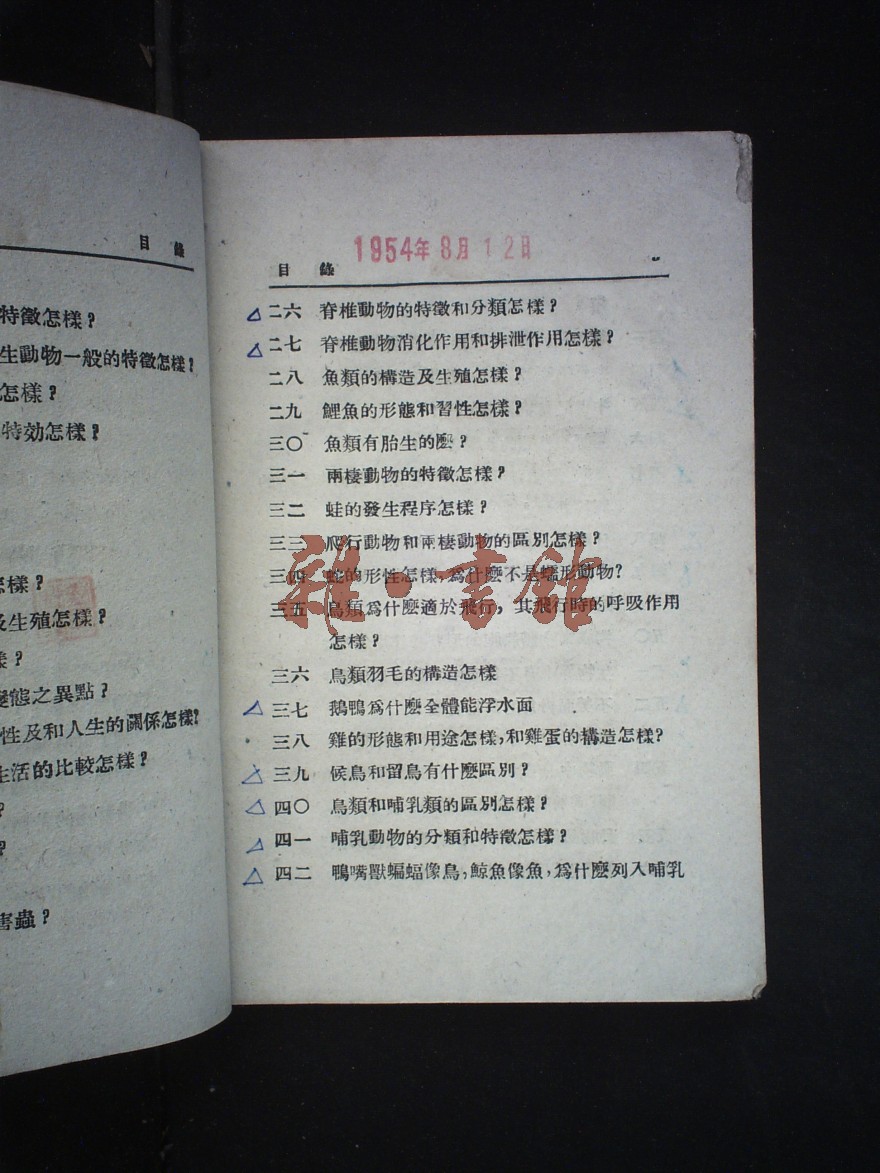 目 錄
特徵怎樣？
生動物一般的特徵怎樣？
怎樣？
特効怎樣？
怎樣？
及生殖怎樣？
樣？
變態之異點？
性及和人生的關係怎樣？
生活的比較怎樣？
？
？
害蟲？
1954年8月12日
目 錄
二六 脊椎動物的特徵和分類怎樣？
二七 脊椎動物消化作用和排泄作用怎樣？
二八 魚類的構造及生殖怎樣？
二九 鯉魚的形態和習性怎樣？
三〇 魚類有胎生的麼？
三一 兩棲動物的特徵怎樣？
三二 蛙的發生程序怎樣？
三三 爬行動物和兩棲動物的區別怎樣？
三四 蛇的形性怎樣，爲什麼不是蠕形動物？
三五 鳥類爲什麼適於飛行，其飛行時的呼吸作用
怎樣？
三六 鳥類羽毛的構造怎樣
三七 鵝鴨爲什麼全體能浮水面
三八 雞的形態和用途怎樣，和雞蛋的構造怎樣？
三九 候鳥和留鳥有什麼區別？
四〇 鳥類和哺乳類的區別怎樣？
四一 哺乳動物的分類和特徵怎樣？
四二 鴨嘴獸蝙蝠像鳥，鯨魚像魚，爲什麼列入哺乳
雜·書館